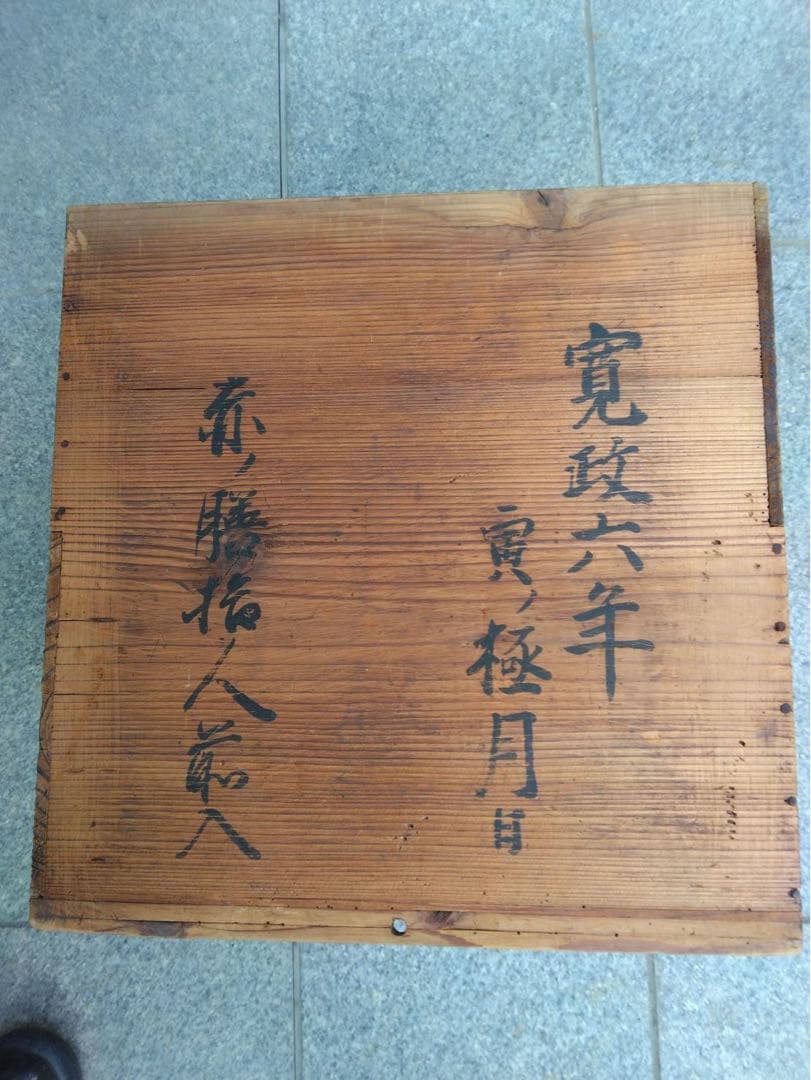 寛政六年
寅ノ極月日
赤ノ膳拾人前入